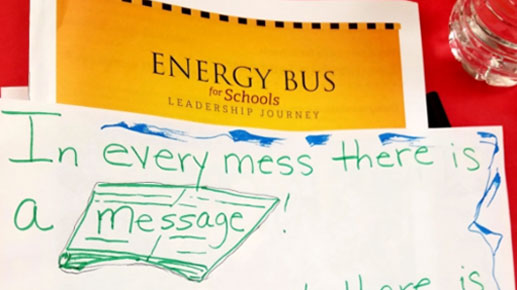 ENERGY BUS
for Schools
LEADERSHIP JOURNEY
In every mess there is
a message!
there is